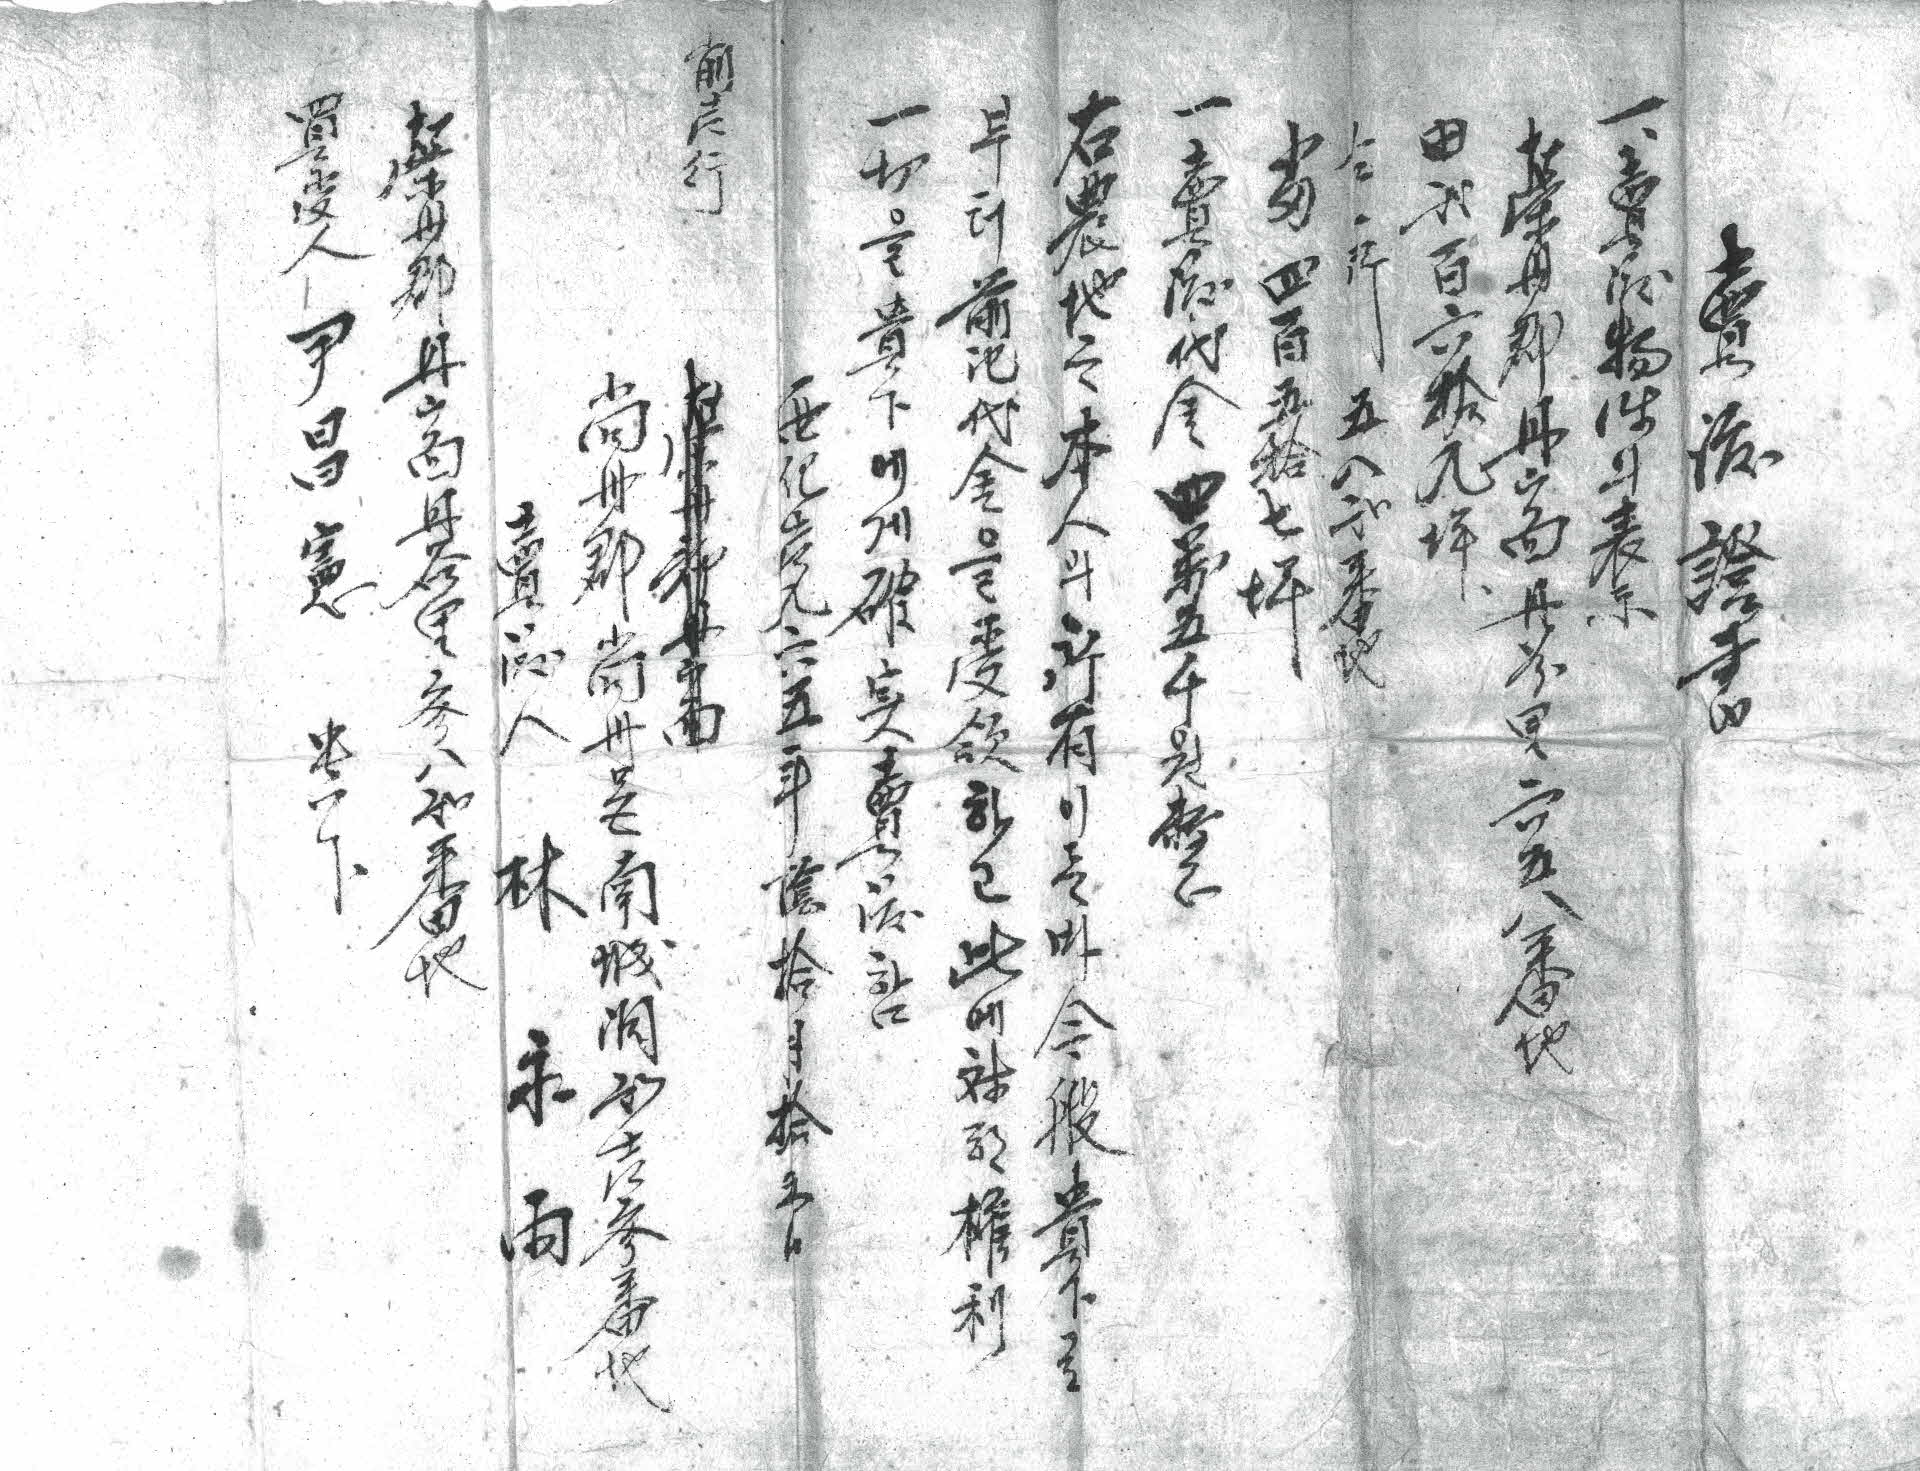 賣渡證書
一、賣渡物件의表示
榮州郡丹山面丹谷里六五八番地
田弐百六拾九坪、
仝所 五八弐番地
畓四百五拾七坪
一賣渡代金四萬五千원整
右農地는本人의所有이든바今般貴下로
부터前記代金을受領하고此에対한權利
一切을貴下에게確実賣渡함
西紀壱九六五年陰拾月拾五日
前壱行
榮州郡丹山面
尚州郡尚州邑南城洞弐壱参番地
賣渡人 林永雨
榮州郡丹山面丹谷里参八弐番地
買受人 尹昌憲 貴下